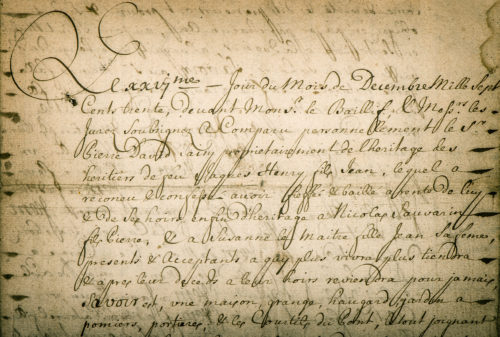 Le xxiijme Jour du Mois de Decembre Mille Sept
Cents trente, devant Monsr. le Baillif, & Messrs. les
Jurez Soubsignez A Comparu personnellement le Sr.
Pierre David aîné proprietairement de l'heritage des
heritiers de feu Jacques Henry fils Jean, lequel a
reconeu & confessé avoir & baille a rente de luy
& de Ses hoirs en fin d'heritage a Nicolas Sauvarin
fils Pierre, & a Susanne le Maitre fille Jean Sa feme
presents & Acceptants a qui plus vivra plus tiendra
& apres leur deceds a leur hoirs reviendra pour jamais
Savoir est, une maison, grange, haugard, jardin a
pomiers, portieres, & les Courtils du Pont, le tout joignant